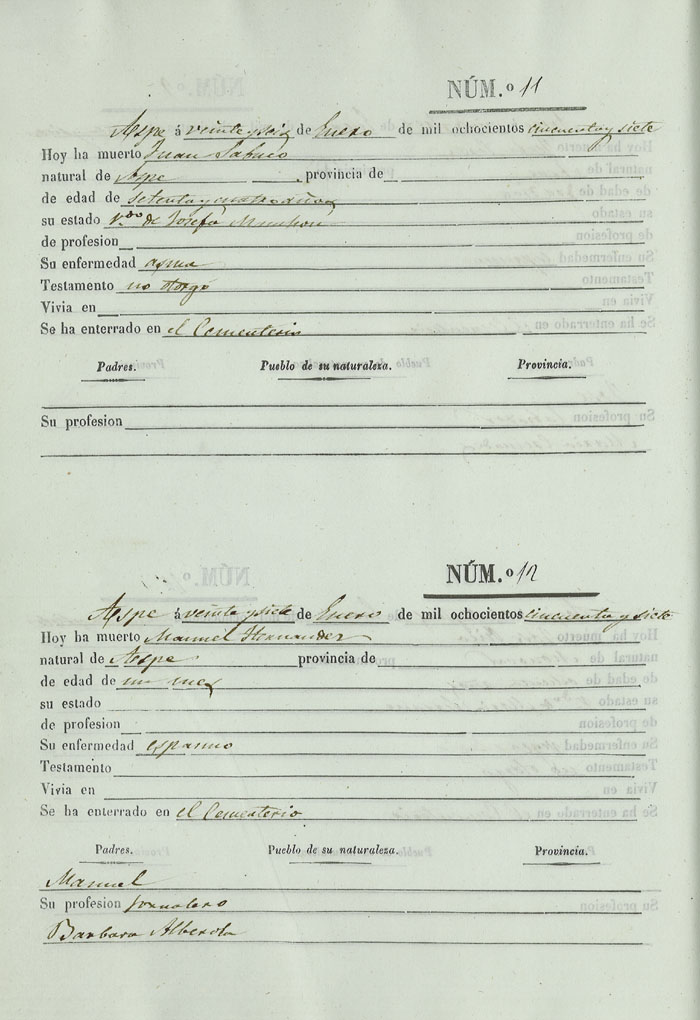 NÚM.º 11
Aspe á veinte y seis de Enero de mil ochocientos cincuenta y siete
Hoy ha muerto Juan
natural de Aspe provincia de
de edad de setenta y cuatro años
su estado V.do de Josefa
de profesion
Su enfermedad asma
Testamento no otorgó
Vivia en
Se ha enterrado en el Cementerio
Padres. Pueblo de su naturaleza. Provincia.
Su profesion
NÚM.º 12
Aspe á veinte y siete de Enero de mil ochocientos cincuenta y siete
Hoy ha muerto Manuel Hernandez
natural de Aspe provincia de
de edad de un mes
su estado
de profesion
Su enfermedad espasmo
Testamento
Vivia en
Se ha enterrado en el Cementerio
Padres. Pueblo de su naturaleza. Provincia.
Manuel
Su profesion Jornalero
Barbara Alberola